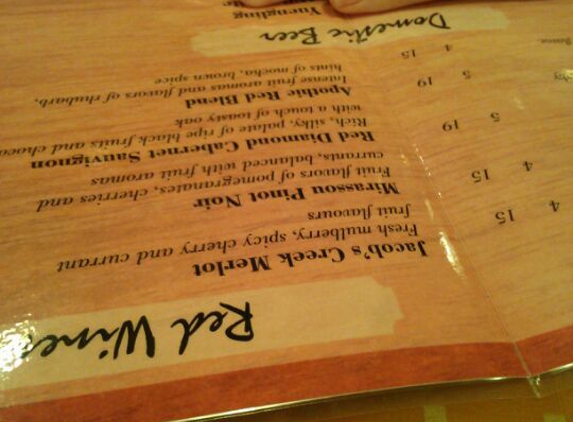 4 15
4 15
5 19
5 19
4 15
Red Wine
Jacob's Creek Merlot
Fresh mulberry, spicy cherry and currant
fruit flavours
Mirassou Pinot Noir
Fruit flavors of pomegranates, cherries and
currants, balanced with fruit aromas
Red Diamond Cabernet Sauvignon
Rich, silky, palate of ripe black fruits and choco
with a touch of toasty oak
Apothic Red Blend
Intense fruit aromas and flavors of rhubarb,
hints of mocha, brown spice
Domestic Beer
Yuengling